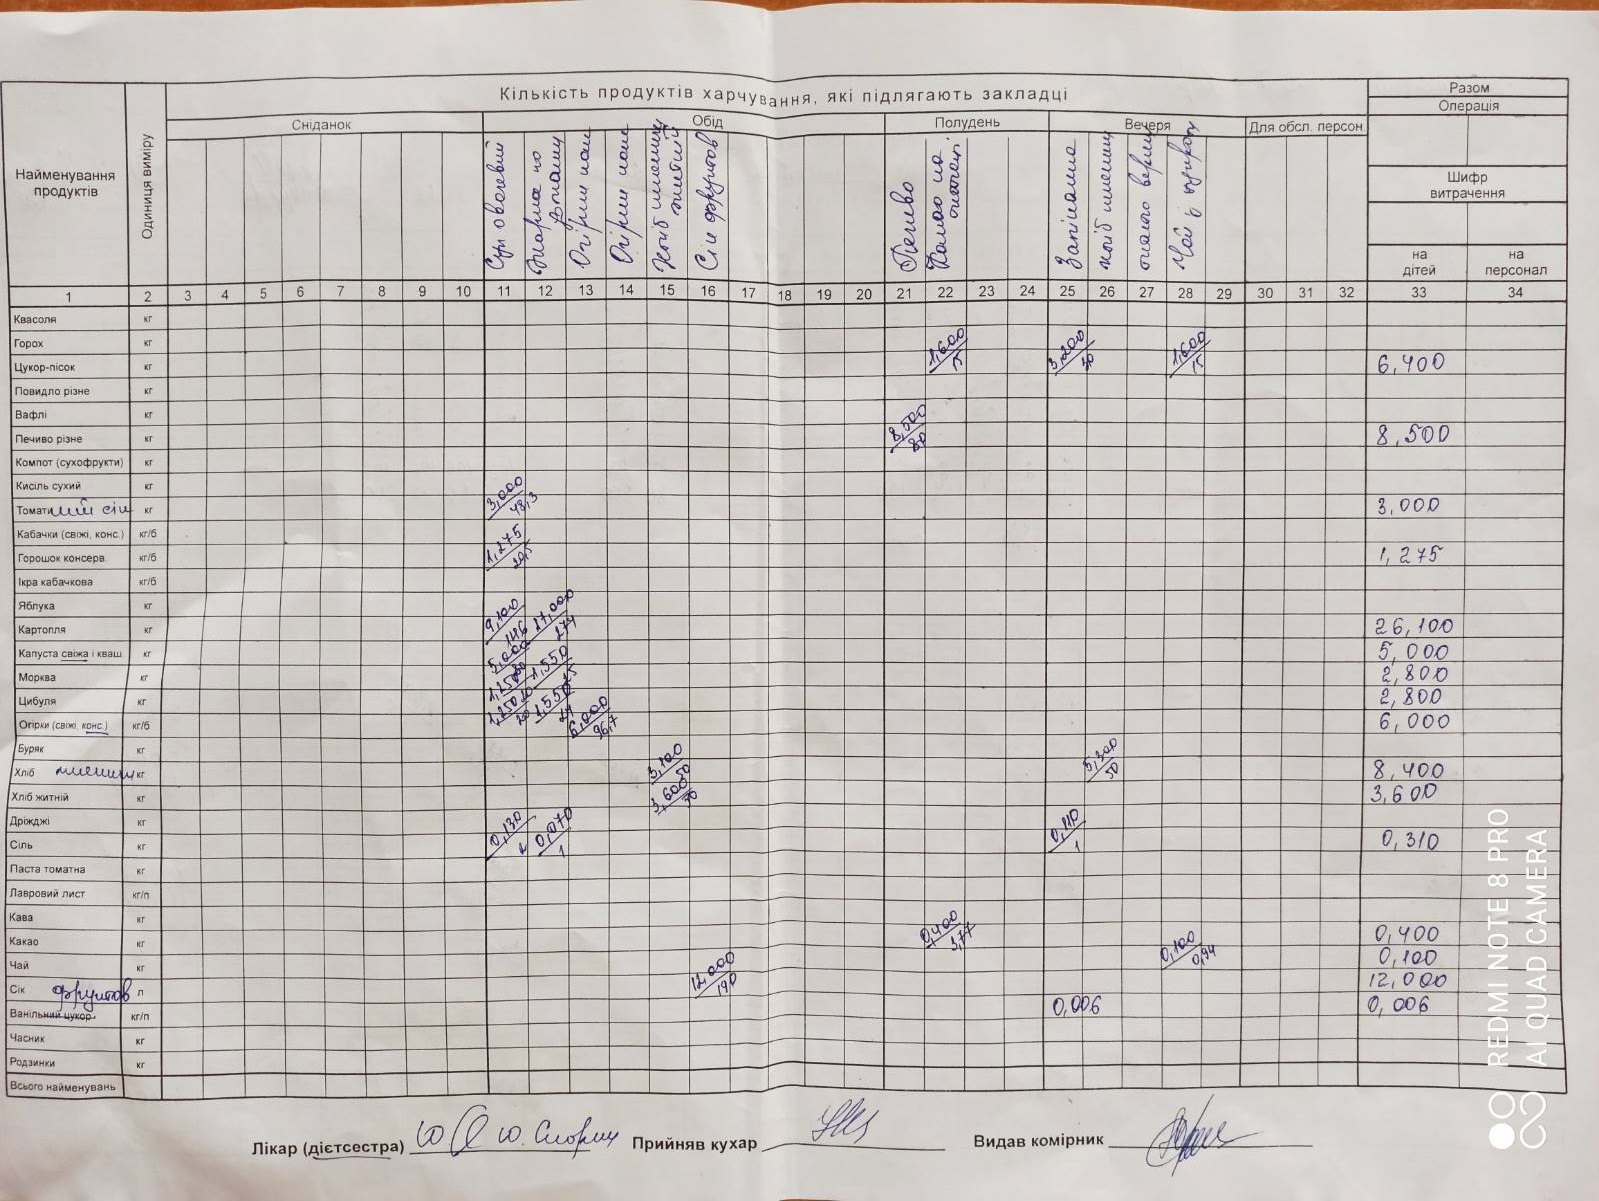 Кількість продуктів харчування, які підлягають закладці
Разом
Операція
Найменування продуктів
Одиниця виміру
Сніданок
Обід
Полудень
Вечеря
Для обсл. персон.
Шифр витрачення
на дітей
на персонал
Суп овочевий
Огірки кон
Огірки конс
Хліб пшеничн житній
Сік фруктов
Печиво
Какао на
Запіканка
хліб пшеничн
масло верш
Чай з цукром
1 2 3 4 5 6 7 8 9 10 11 12 13 14 15 16 17 18 19 20 21 22 23 24 25 26 27 28 29 30 31 32 33 34
Квасоля кг
Горох кг
Цукор-пісок кг 1,600/15 3,200/30 1,600/15 6,400
Повидло різне кг
Вафлі кг
Печиво різне кг 8,500/80 8,500
Компот (сухофрукти) кг
Кисіль сухий кг
Томатний сік кг 3,000/48,3 3,000
Кабачки (свіжі, конс.) кг/б
Горошок консерв. кг/б 1,275/20,5 1,275
Ікра кабачкова кг/б
Яблука кг
Картопля кг 9,100/146 17,000/274 26,100
Капуста свіжа і кваш. кг 5,000/80 5,000
Морква кг 1,250/20 1,550/25 2,800
Цибуля кг 1,250/20 1,550/24 2,800
Огірки (свіжі, конс.) кг/б 6,000/96,7 6,000
Буряк кг
Хліб пшеничн кг 3,100/50 5,300/50 8,400
Хліб житній кг 3,600/30 3,600
Дріжджі кг
Сіль кг 0,130/2 0,070/1 0,110/1 0,310
Паста томатна кг
Лавровий лист кг/п
Кава кг
Какао кг 0,400/3,77 0,400
Чай кг 0,100/0,94 0,100
Сік фруктов л 12,000/190 12,000
Ванільний цукор кг/п 0,006 0,006
Часник кг
Родзинки кг
Всього найменувань
Лікар (дієтсестра) Прийняв кухар Видав комірник
REDMI NOTE 8 PRO
AI QUAD CAMERA